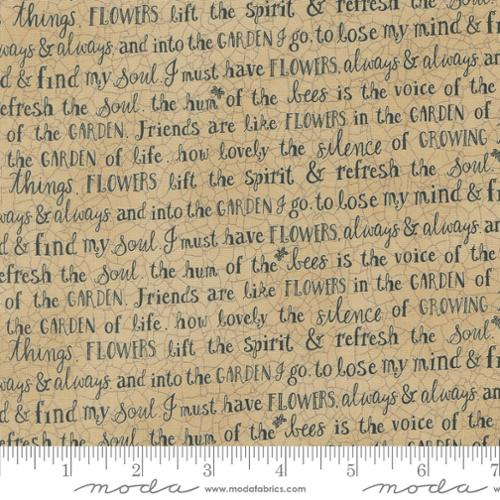 things. FLOWERS lift the spirit & refresh the soul
ways & always. and into the GARDEN I go. to lose my mind &
d & find my soul. I must have FLOWERS, always & always. an
efresh the soul. the hum of the bees is the voice of the
of the GARDEN. Friends are like FLOWERS in the GARDEN of
the GARDEN of life. how lovely the silence of GROWING
things. FLOWERS lift the spirit & refresh the soul
ways & always. and into the GARDEN I go. to lose my mind & f
d & find my soul. I must have FLOWERS, always & always. an
efresh the soul. the hum of the bees is the voice of the
of the GARDEN. Friends are like FLOWERS in the GARDEN of
the GARDEN of life. how lovely the silence of GROWING
things. FLOWERS lift the spirit & refresh the soul
ways & always. and into the GARDEN I go. to lose my mind & fi
d & find my soul. I must have FLOWERS, always & always. an
efresh the soul. the hum of the bees is the voice of the
1 2 3 4 5 6 7
moda www.modafabrics.com moda